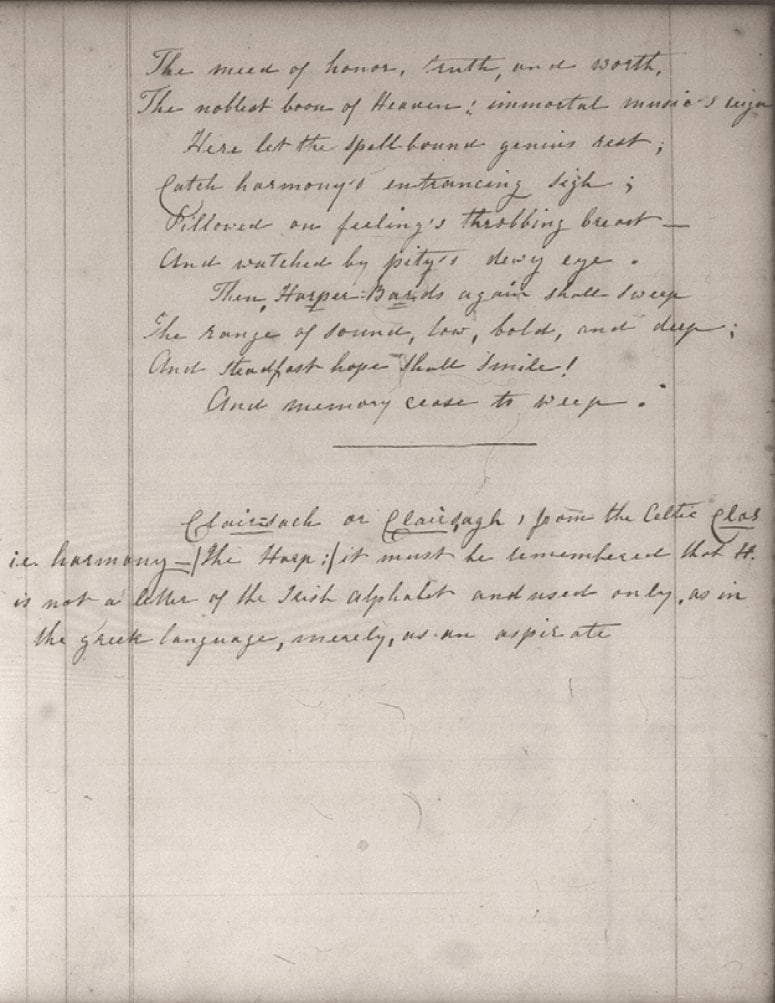 The meed of honor, truth, and worth,
The noblest boon of Heaven; immortal music's reign
Here let the spell-bound genius rest;
Catch harmony's entrancing sigh;
Pillowed on feeling's throbbing breast—
And watched by pity's dewy eye.
Then, Harper-Bards again shall sweep
The range of sound, low, bold, and deep;
And steadfast hope shall smile!
And memory cease to weep.
Clairseach or Clairsagh, from the Celtic Clar
i.e. harmony—/The Harp:/ it must be remembered that H.
is not a letter of the Irish alphabet and used only, as in
the greek language, merely, as an aspirate